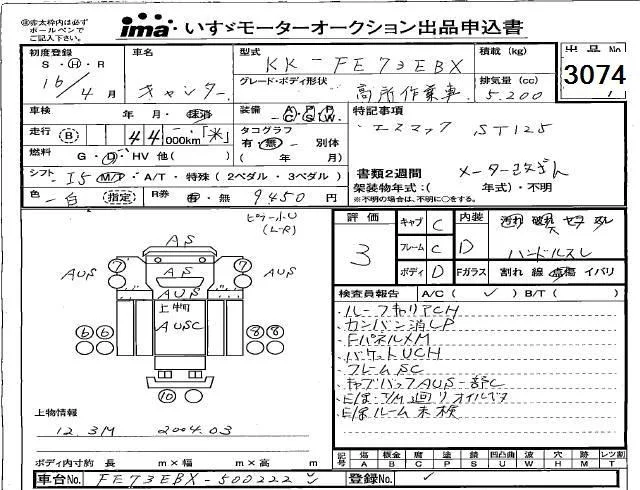 ㊟赤太枠内は必ず
ボールペンで
ご記入下さい。
ima いすゞモーターオークション出品申込書
初度登録 S・H・R 16/4月
車名 キャンター
型式 KK-FE73EBX
積載(kg)
出品No. 3074
グレード・ボディ形状 高所作業車
排気量(cc) 5.200
車検 年・月・抹消
装備 A/C P/S P/W
特記事項
走行 B 44,000km「米」
タコグラフ 有・無・別体 (年 月)
エスマック ST125
燃料 G・D・HV 他( )
シフト I5 M/T・A/T・特殊(2ペダル・3ペダル)
書類2週間 メーター改ざん
架装物年式:( 年式)・不明
※不明の場合は、不明に○をする。
色 白 指定 R券 有・無 9450円
ピラー小U
(L-R)
評価 3
キャブ C 内装 D 汚れ 破れ ヤコゲ スレ
フレーム C ハンドルスレ
ボディ D Fガラス 割れ 線 飛傷 イバリ
AS
7 7
AUS AS AUS
AUS
上物
AUSC
6 6 8 8
10
検査員報告 A/C(✓) B/T( )
・ルーフキャリアCH
・カンバン消LP
・FパネルXM
・バケットUCH
・フレームSC
・キャブバックAUS-部C
・E/g・T/M廻りオイルモレ
・E/gルーム未検
上物情報
12.3M 2004.03
ボディ内寸約 長 m×幅 m×高 m
記号 傷A 板金B 腐C 塗P 錆S 凹凸曲U 波W 穴H 跡M レンズ割T
車台No. FE73EBX-500222
登録No.